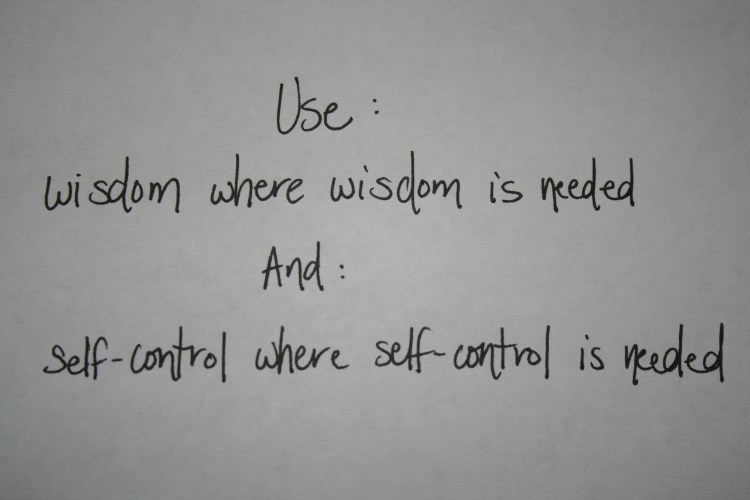 Use:
wisdom where wisdom is needed
And:
self-control where self-control is needed